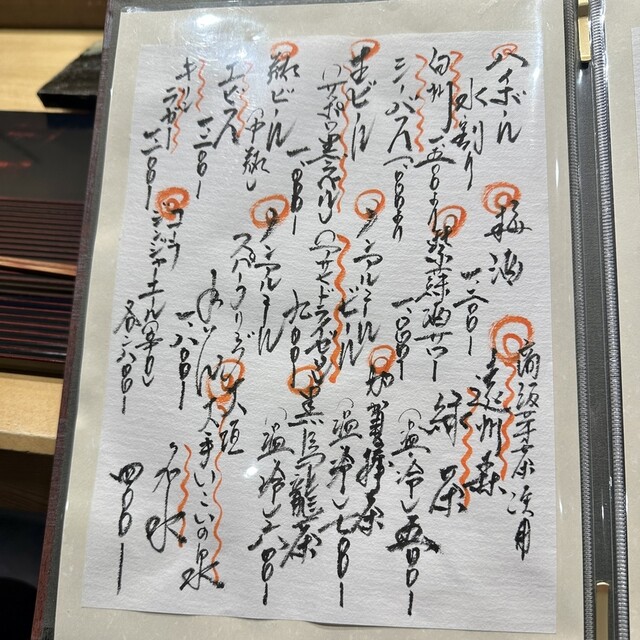 ハイボール
水割り
白州 一、五〇〇より
シーバス 一、〇〇〇より
生ビール
(サッポロ黒ラベル)
瓶ビール 一、〇〇〇ー
(中瓶)
エビス 一、二〇〇ー
キリン
ラガー 一、二〇〇ー
梅酒
一、二〇〇ー
紫蘇酒サワー
一、〇〇〇ー
ノンアルコール
ビール
(アサヒドライゼロ)
九〇〇ー
ノンアルコール
スパークリング
一、八〇〇ー
コーラ
ジンジャーエール
各六〇〇ー
遠州森
緑茶
(温・冷) 五〇〇ー
加賀棒茶
(温・冷) 七〇〇ー
黒烏龍茶
(温・冷) 六〇〇ー
大垣
大手いこいの泉
お水
四〇〇ー